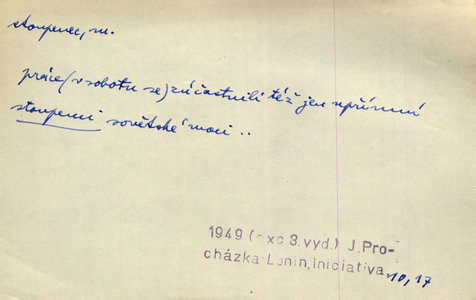 stoupenec, m.
práce (v sobotu se) zúčastnili též jen upřímní
stoupenci sovětské moci ..
1949 (exc 3. vyd.) J. Pro-
cházka: Lenin, Iniciativa, 10, 17